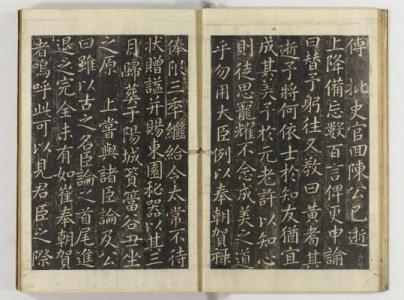 傳北史官面陳公已逝
上降備忘數百言俾更申諭
曰替予躬往又敎曰黃耉其
逝予將何依士於知友猶宜
成其美予於元老許以知心
則徒思寵耀不念成美之道
乎勿用大臣例以奉朝賀祿
俸限三年繼給令太常不待
狀贈諡并賜東園秘器以其三
月歸葬于陽城簣簹谷丑坐
之原 上當與諸臣論及公
曰雖以古之名臣論之首尾進
退之完全未有如崔奉朝賀
者嗚呼此可以見君臣之際